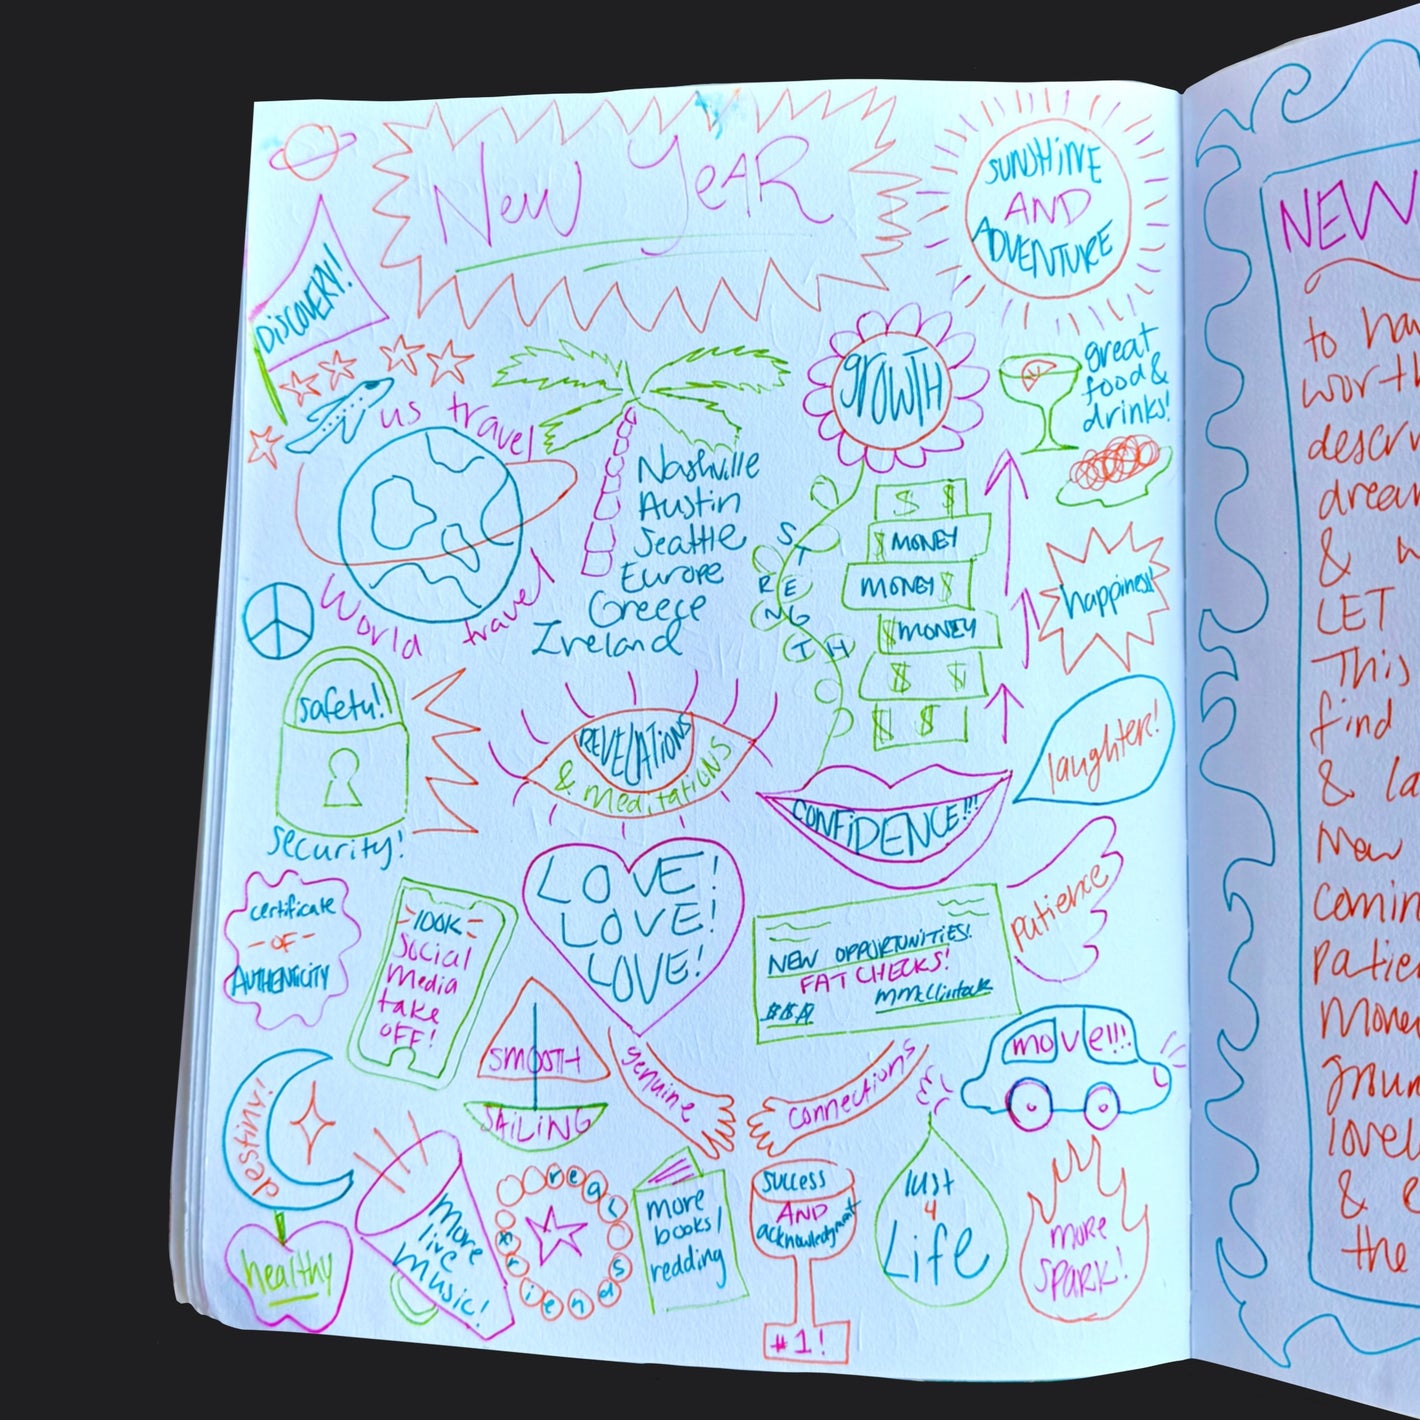 New Year
SUNSHiNE
AND
ADVENTURE
DiSCOVERY!
us travel
World travel
Nashville
Austin
Seattle
Europe
Greece
Ireland
growTH
great
food &
drinks!
STRENGTH
$ $
$ MONEY
MONEY $
$ MONEY
$ $
$ $
happiness!
safety!
security!
REVELATiONS
& meditations
CONFiDENCE!!!
laughter!
patience
certificate
- OF -
AUTHENTiCiTY
100K
Social
Media
take
OFF!
LOVE!
LOVE!
LOVE!
NEW OPPORTUNiTiES!
FAT CHECKS!
$$$ MMcClintock
SMOOTH
SAiLiNG
genuine
connections
move!!!
destiny!
healthy
More
live
music!
real
friends
more
books/
redding
success
AND
acknowledgment
#1!
lust
4
Life
more
SPARK!
NEW
to
worth
& 
LET
This
find
& la
Now
the